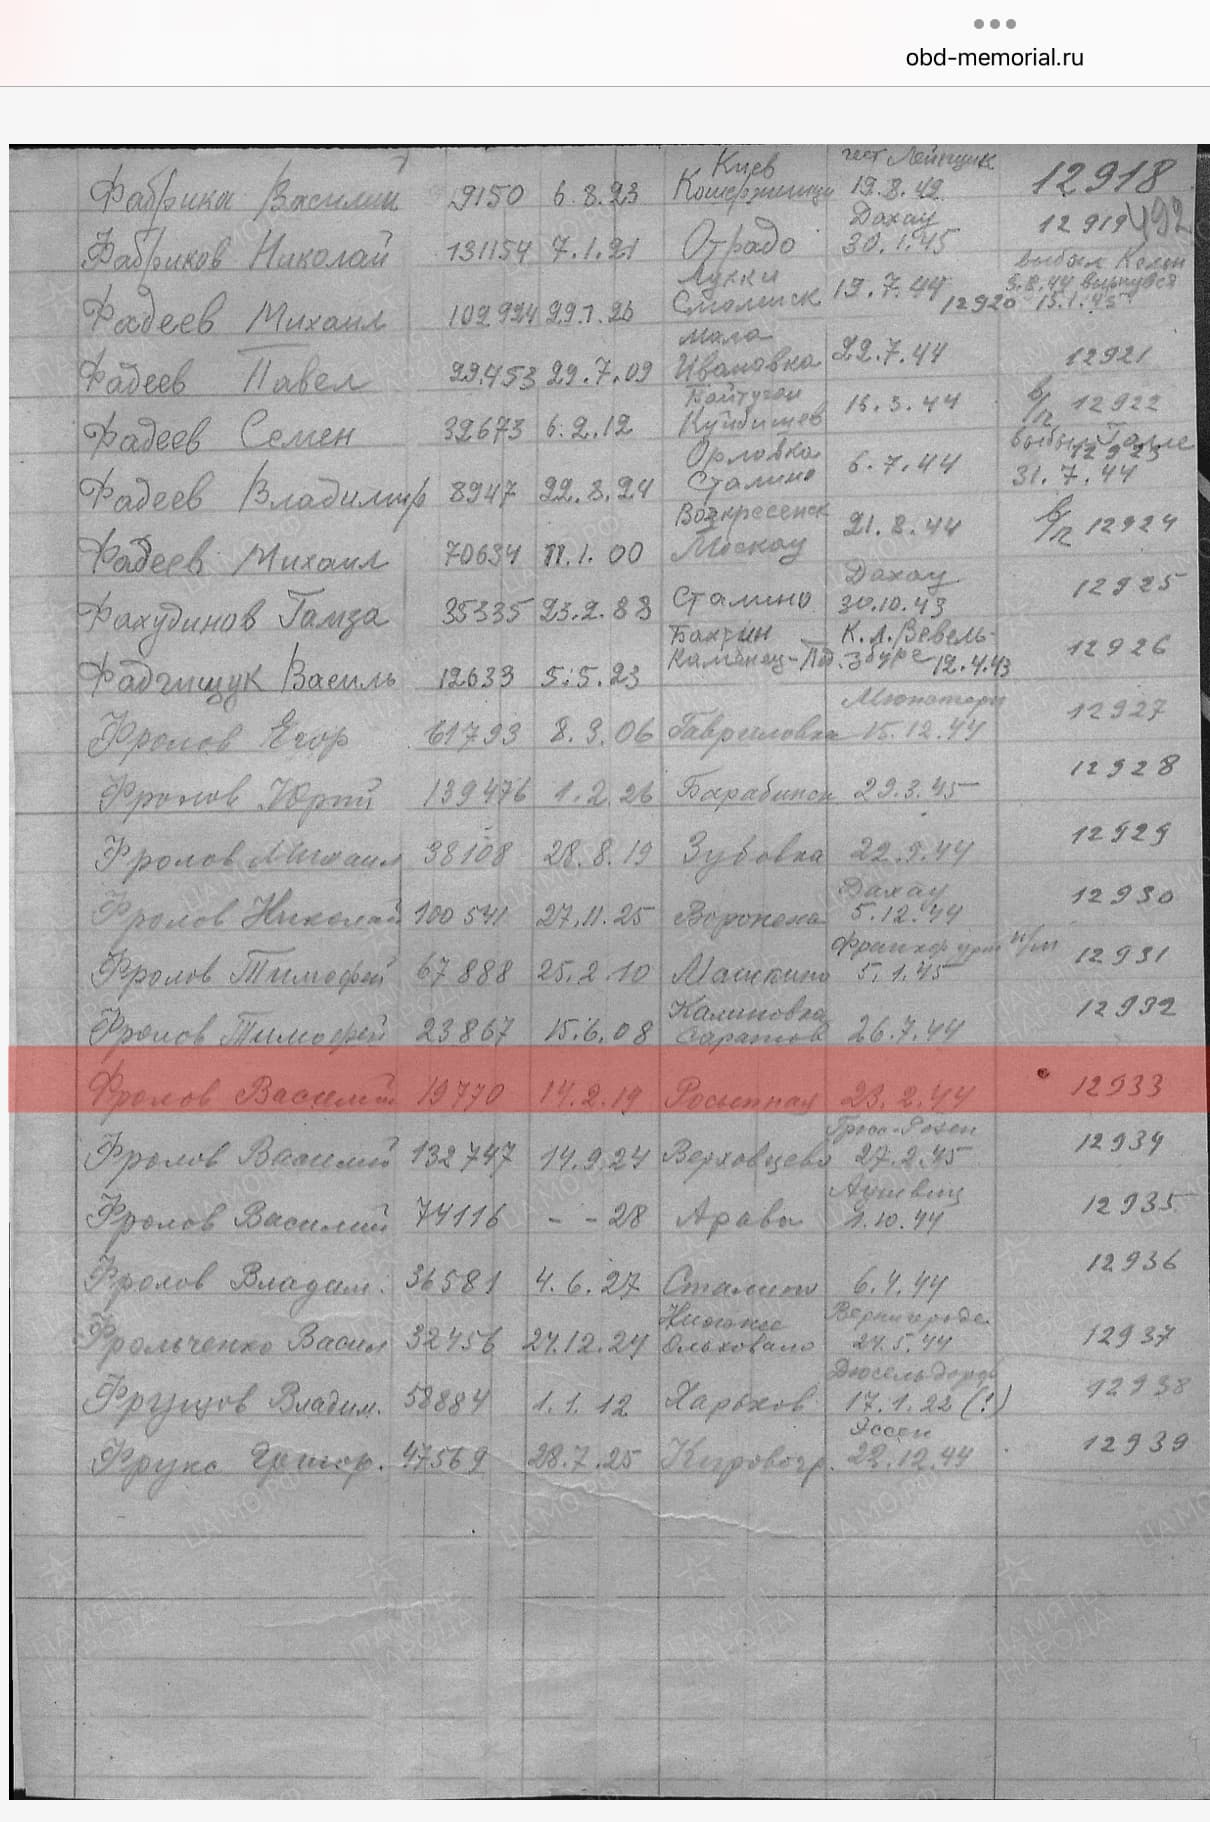 obd-memorial.ru
Киев гест. Лейпциг
Фабрика Василий 19150 6.8.23 19.8.42 12918
Дахау 12919 492
Фабриков Николай 131154 7.1.21 Отрадо 30.1.45
выбыл Кельн
Лукки 5.8.44 вернулся
Фадеев Михаил 102924 Смолинск 19.7.44 12920 15.1.45
Мало
Фадеев Павел 29.7.09 Ивановка 22.7.44 12921
Байтуган в/п 12922
Фадеев Семен 32673 6.2.12 Куйбишев 15.3.44
Орловка выбыл Галле 12923
Фадеев Владимир 8947 22.8.24 Сталино 6.7.44 31.7.44
Воскресенск
Фадеев Михаил 70634 11.1.00 Москау 21.8.44 в/п 12924
Дахау 12925
Фахудинов Гамза 35335 23.2.83 Сталино 30.10.43
Бахтин К.Л. Вевель-
Фадчищук Василь 12633 5.5.23 Каменец-Под. збург 12.4.43 12926
Фролов Егор 61793 8.3.06 Гавриловка 15.12.44 12927
Фролов Юрий 139476 1.2.26 Барабинск 29.3.45 12928
Фролов Михаил 38108 28.8.19 Зубовка 22.9.44 12929
Дахау
Фролов Николай 100541 27.11.25 5.12.44 12930
Франкфурт н/м
Фролов Тимофей 67888 25.2.10 Машкино 5.1.45 12931
Калиновка
Фролов Тимофей 23867 15.6.08 Саратов 26.7.44 12932
Фролов Василий 19770 14.2.19 Росыпная 23.2.44 12933
Грос-Розен
Фролов Василий 132747 14.9.24 Верховцево 27.2.45 12934
Аушвиц
Фролов Василий 74116 - - 28 1.10.44 12935
Фролов Владим. 36581 4.6.27 Сталино 6.4.44 12936
Нижнее Вернигероде
Фрольченко Васил 32456 24.12.24 Ольховало 24.5.44 12937
Дюсельдорф
Владим. 58884 1.1.12 Харьков 17.1.22 (!) 12938
Эссен
Григор. 47569 28.7.25 Кировогр. 22.12.44 12939
ЦАМО.РФ
ПАМЯТЬ НАРОДА